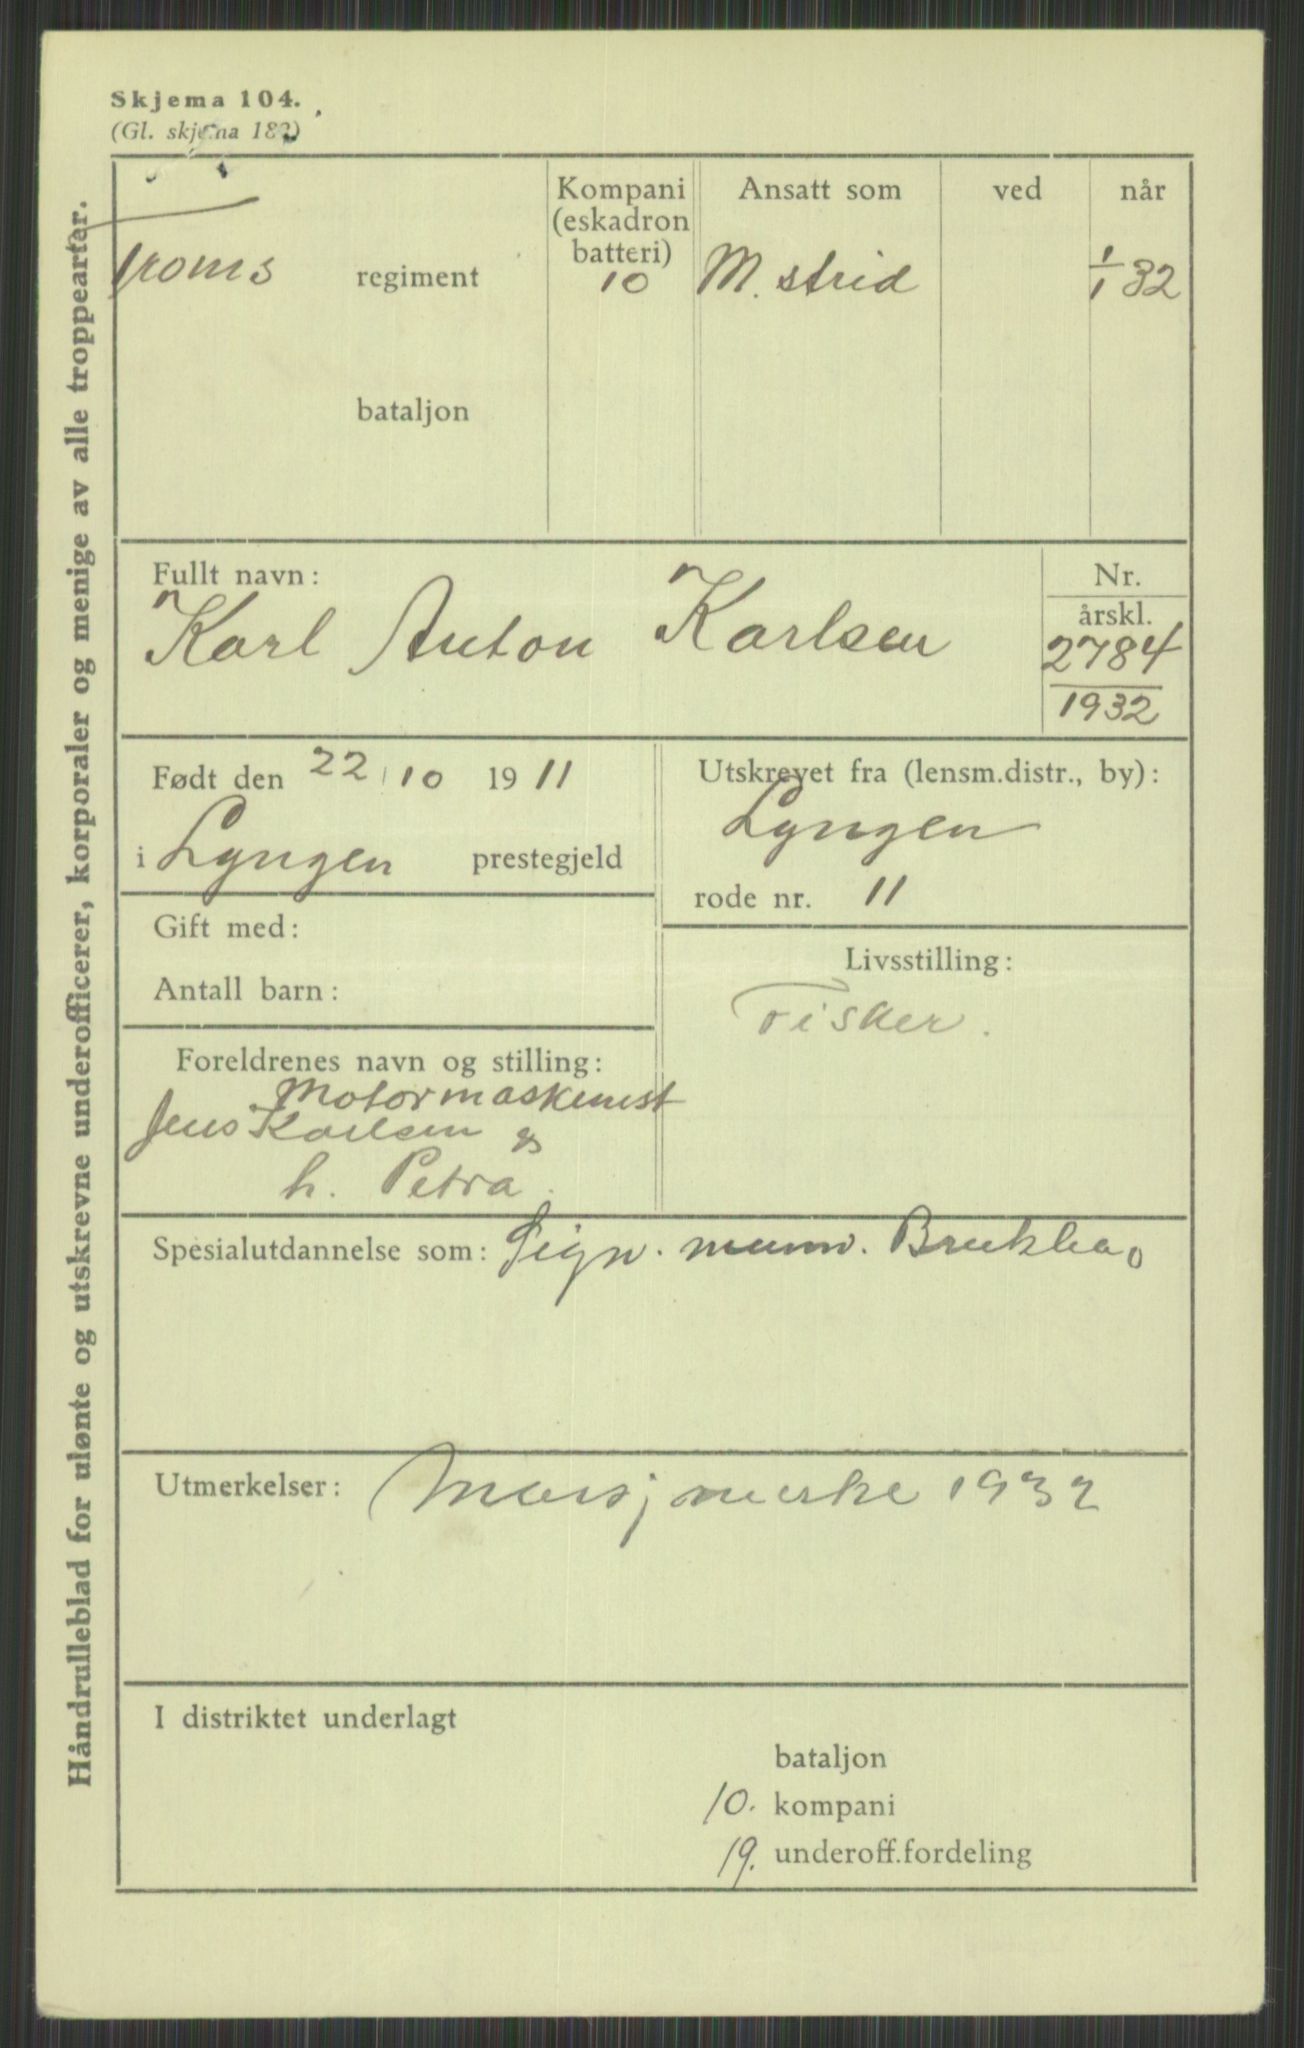 Skjema 104.
(Gl. skjema 182)
Håndrulleblad for ulønte og utskrevne underofficerer, korporaler og menige av alle troppearter.
Kompani (eskadron batteri) Ansatt som ved når
Troms regiment 10 M. strid 1/1 32
bataljon
Fullt navn: Nr.
årskl.
Karl Anton Karlsen 2784
1932
Født den 22 10 1911
i Lyngen prestegjeld
Utskrevet fra (lensm.distr., by):
Lyngen
rode nr. 11
Gift med:
Antall barn:
Livsstilling:
Fisker.
Foreldrenes navn og stilling:
Motormaskinist
Jens Karlsen og
h. Petra.
Spesialutdannelse som: Sign. mann. Brukba,
Utmerkelser: Marsjmerke 1932
I distriktet underlagt
bataljon
10. kompani
19. underoff.fordeling